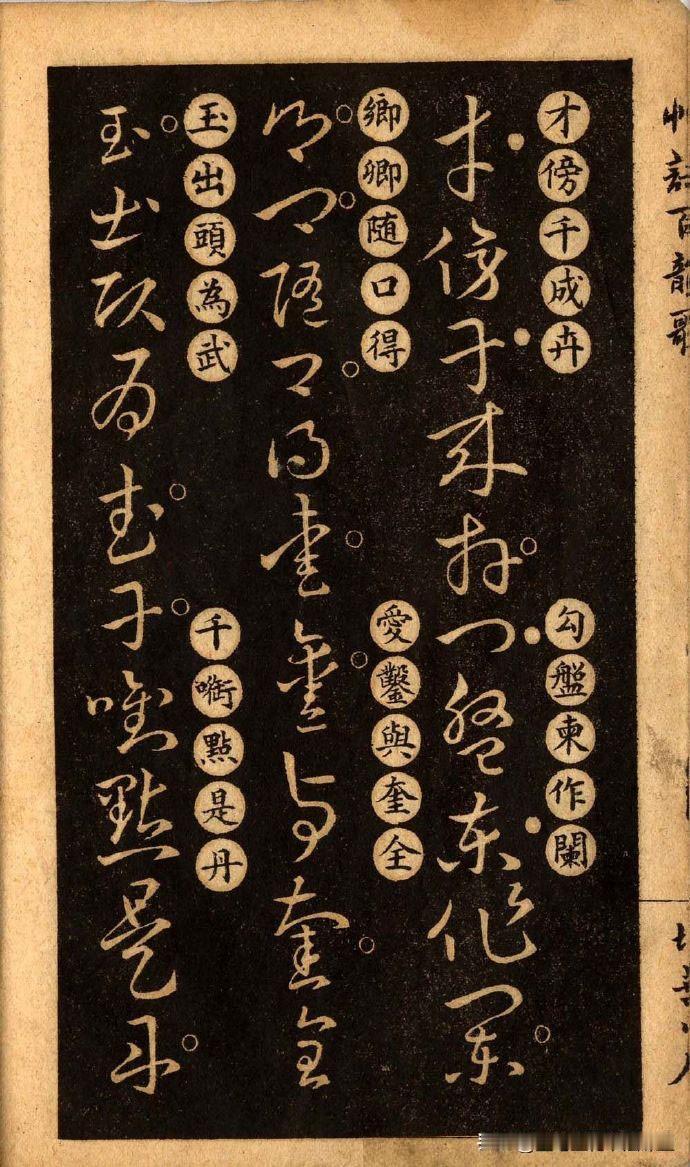 草訣百韻歌
才傍千成卉
勾盤柬作闌
鄉卿随口得
愛鑿與奎全
玉出頭為武
千啣點是丹